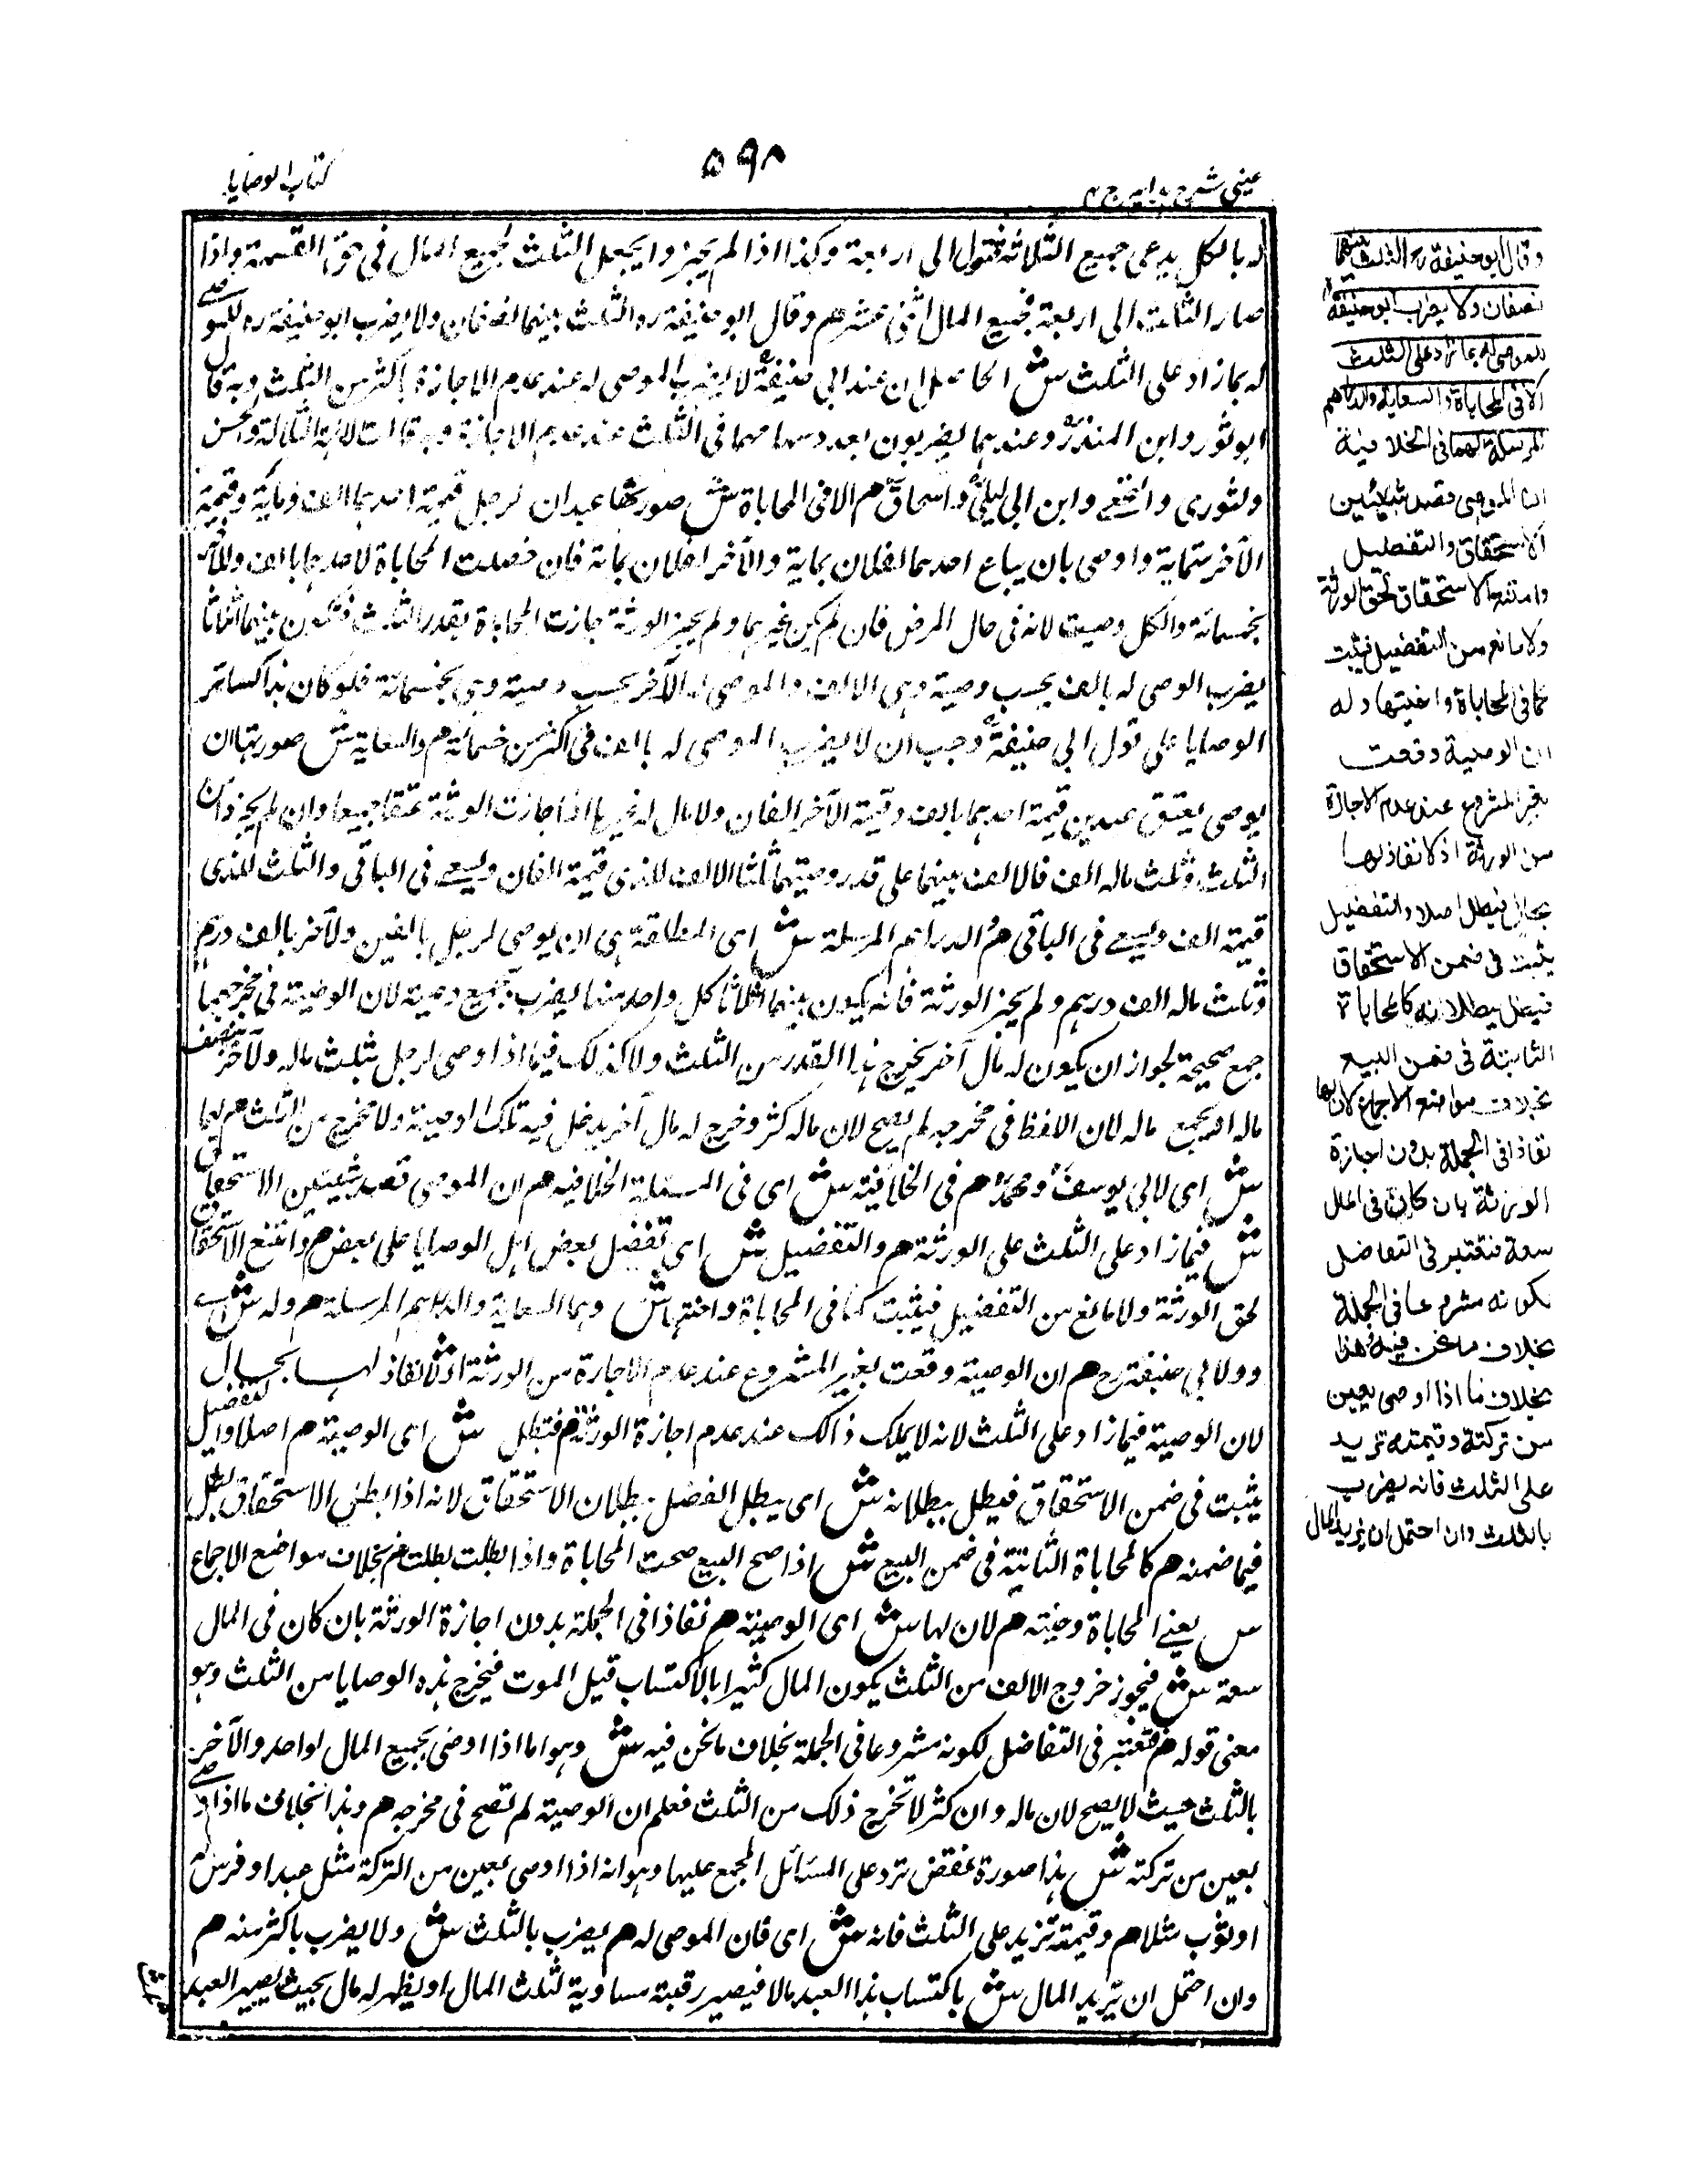 عينى شرح هدايه ج ٤
٥٩٨
كتاب الوصايا
له بالكل يدعى جميع الثلاثة فتول الى اربعة وكذا اذا لم يجيزوا يجعل الثلث كجميع المال فى حق القسمة واذا
صار الثلث الى اربعة فجميع المال اثنى عشر هم وقال ابو حنيفة ره الثلث بينهما نصفان ولا يضرب ابو حنيفة ره للموصى
له بما زاد على الثلث ش الحاصل ان عند ابى حنيفة لا يضرب الموصى له عند عدم الاجازة باكثر من الثلث وبه قال
ابو ثور وابن المنذر وعندهما يضربون بعدد سهامهما فى الثلث عند عدم الاجازة وبه قالت الائمة الثلاثة والحسن
والثورى والنخعى وابن ابى ليلى واسحاق هم الا فى المحاباة ش صورتها عبدان لرجل قيمة احدهما الف ومائة وقيمة
الآخر ستماية واوصى بان يباع احدهما لفلان بماية والآخر لفلان بمائة فان حصلت المحاباة لاحدهما بالف وللآخر
بخمسمائة والكل وصية لانه فى حال المرض فان لم يكن غيرهما ولم يجيز الورثة جازت المحاباة بقدر الثلث فيكون بينهما اثلاثا
يضرب الموصى له بالف بحسب وصية وهى الالف والموصى له الآخر بحسب وصية وهى بخمسمائة فلو كان هذا كسائر
الوصايا على قول ابى حنيفة وجب ان لا يضرب الموصى له بالف فى اكثر من خمسمائة هم والسعاية ش صورتها ان
يوصى بعتق عبدين قيمة احدهما بالف وقيمة الآخر الفان ولا مال له غيرها اذا جازت الورثة عتقا جميعا وان لم يجيزوا من
الثلث وثلث ماله الف فالالف بينهما على قدر وصيتهما ثلثا الالف للذى قيمة الفان ويسعى فى الباقى والثلث للذى
قيمة الف ويسعى فى الباقى هم والدراهم المرسلة ش اى المطلقة هى ان يوصى لرجل بالفين ولآخر بالف درهم
وثلث ماله الف درهم ولم يجيز الورثة فانه يكون بينهما اثلاثا كل واحد منهما يضرب بجميع وصية لان الوصية فى مخرجهما
جمع صحيحة لجواز ان يكون له مال آخر يخرج هذا القدر من الثلث ولا كذلك فيما اذا اوصى لرجل بثلث ماله ولآخر بنصف
ماله او بجميع ماله لان اللفظ فى مخرجه لم يصح لان ماله كثر وخرج له مال آخر يدخل فيه تلك الوصية ولا تخرج من الثلث هم لهما
ش اى لابى يوسف ومحمد هم فى الخلافية ش اى فى المسئلة الخلافيه هم ان الموصى قصد شيئين الاستحقاق
ش فيما زاد على الثلث على الورثة هم والتفضيل ش اى تفضيل بعض اهل الوصايا على بعض هم وامتنع الاستحقاق
لحق الورثة ولا مانع من التفضيل فيثبت كما فى المحاباة واختيها ش وهما السعاية والدراهم المرسلة هم وله ش اى
وولابى حنيفة رح هم ان الوصية وقعت بغير المشروع عند عدم الاجازة من الورثة اذ لا نفاذ لها بحال
لان الوصية فيما زاد على الثلث لانه لا يملك ذالك عند عدم اجازة الورثة هم فتبطل ش اى الوصية هم اصلا والتفضيل
يثبت فى ضمن الاستحقاق فيبطل ببطلانه ش اى يبطل الفضل ببطلان الاستحقاق لانه اذا بطل الاستحقاق بطل
فيما ضمنه هم كالمحاباة الثابتة فى ضمن البيع ش اذا صح البيع صحت المحاباة واذا بطلت بطلت هم بخلاف مواضع الاجماع
س يعنى المحاباة وخيته هم لان لها ش اى الوصية هم نفاذا فى الجملة بدون اجازة الورثة بان كان فى المال
سعة ش فيجوز خروج الالف من الثلث يكون المال كثيرا بالاكتساب قبل الموت فيخرج هذه الوصايا من الثلث وهو
معنى قوله هم فتعتبر فى التفاضل لكونه مشروعا فى الجملة بخلاف ما نحن فيه ش وهو ما اذا اوصى بجميع المال لواحد والآخر
بالثلث حيث لا يصح لان ماله وان كثر لا تخرج ذلك من الثلث فعلم ان الوصية لم تصح فى مخرجه هم وهذا بخلاف ما اذا اوصى
بعين من تركته ش هذا صورة نقض ترد على المسائل المجمع عليها وهو انه اذا اوصى بعين من التركة مثل عبد او فرس
او ثوب مثلا هم وقيمته تزيد على الثلث فانه ش اى فان الموصى له هم يضرب بالثلث ش ولا يضرب باكثر منه هم
وان احتمل ان يزيد المال ش باكتساب هذا العبد مالا فيصير رقبته مساوية لثلث المال او يظهر له مال بحيث يصير العبد
وقال ابو حنيفة ره الثلث بينهما
نصفان ولا يضرب ابو حنيفة
للموصى له بما زاد على الثلث
الا فى المحاباة والسعاية والدراهم
المرسلة لهما فى الخلافية
ان الموصى قصد شيئين
الاستحقاق والتفضيل
وامتنع الاستحقاق لحق الورثة
ولا مانع من التفضيل فيثبت
كما فى المحاباة واختيها وله
ان الوصية وقعت
بغير المشروع عند عدم الاجازة
من الورثة اذ لا نفاذ لها
بحال فيبطل اصلا والتفضيل
يثبت فى ضمن الاستحقاق
فبطل ببطلانه كالمحاباة
الثابتة فى ضمن البيع
بخلاف مواضع الاجماع لان لها
نفاذا فى الجملة بدون اجازة
الورثة بان كان فى المال
سعة فتعتبر فى التفاضل
لكونه مشروعا فى الجملة
بخلاف ما نحن فيه وهذا
بخلاف ما اذا اوصى بعين
من تركته وقيمته تزيد
على الثلث فانه يضرب
بالثلث وان احتمل ان يزيد المال